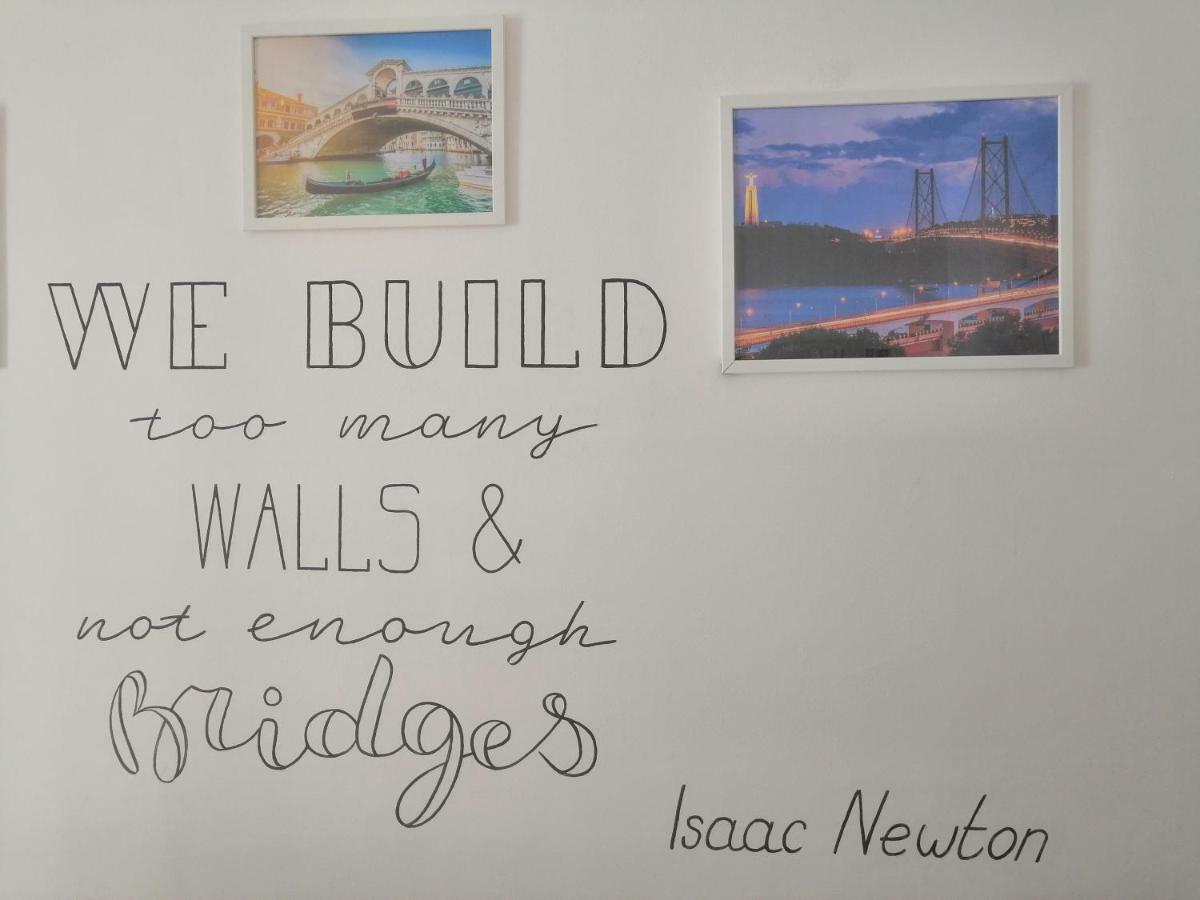 WE BUILD
too many
WALLS &
not enough
Bridges
Isaac Newton